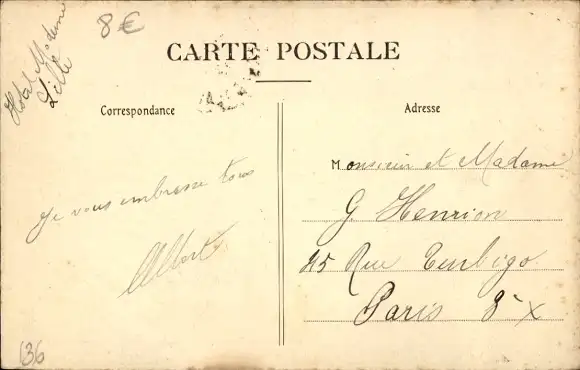 Hotel Moderne
Lille
8€
CARTE POSTALE
Correspondance
Adresse
Je vous embrasse tous
Albert
Monsieur et Madame
G. Henrion
45 Rue Turbigo
Paris
136